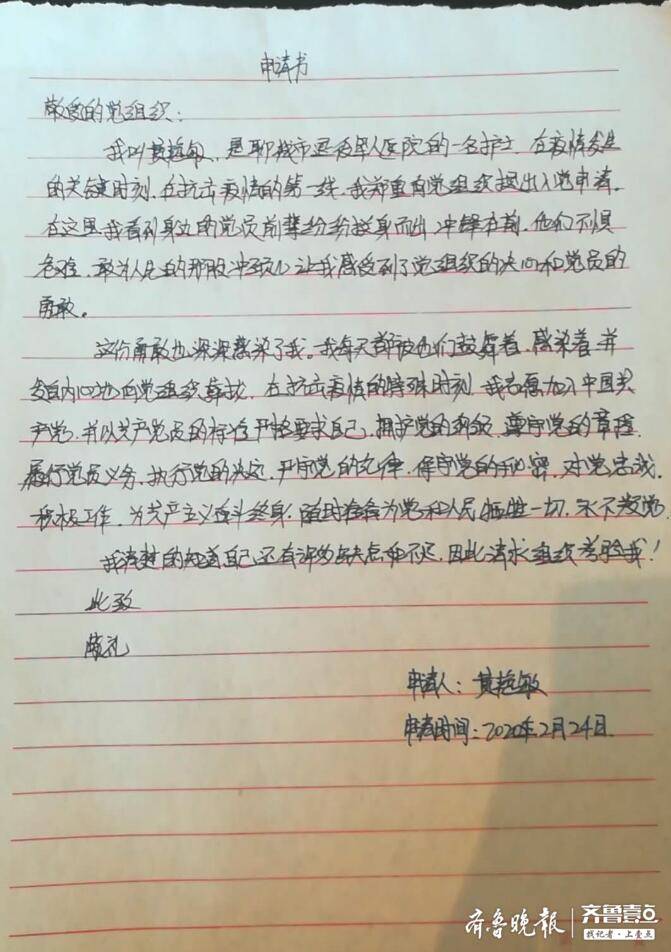 申请书
敬爱的党组织：
我叫黄超敏，是聊城市退役军人医院的一名护士，在疫情发生
的关键时刻，在抗击疫情的第一线，我郑重向党组织提出入党申请。
在这里我看到身边的党员前辈纷纷挺身而出，冲锋在前，他们不惧
危险，敢为人先的那股冲劲，让我感受到了党组织的决心和党员的
勇敢。
这份勇敢也深深感染了我。我每天都被他们鼓舞着，感染着，并
发自内心地向党组织靠拢，在抗击疫情的特殊时刻，我志愿加入中国共
产党，并以共产党员的标准严格要求自己，拥护党的纲领，遵守党的章程，
履行党员义务，执行党的决定，严守党的纪律，保守党的秘密，对党忠诚，
积极工作，为共产主义奋斗终身，随时准备为党和人民牺牲一切，永不叛党。
我清楚的知道自己还有许多缺点和不足，因此请求组织考验我！
此致
敬礼
申请人：黄超敏
申请时间：2020年2月24日
齐鲁晚报
齐鲁壹点
找记者·上壹点